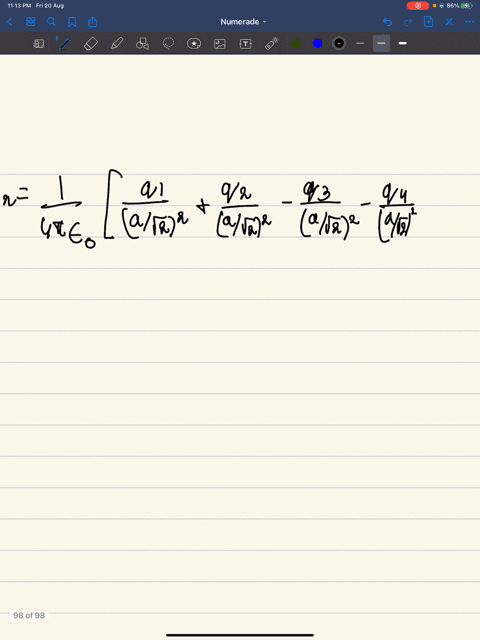 11:13 PM Fri 20 Aug
86%
Numerade
T
x = 1/4πϵ₀ [ q1/(a/√2)² + q2/(a/√2)² - q3/(a/√2)² - q4/(a/√2)²
98 of 98